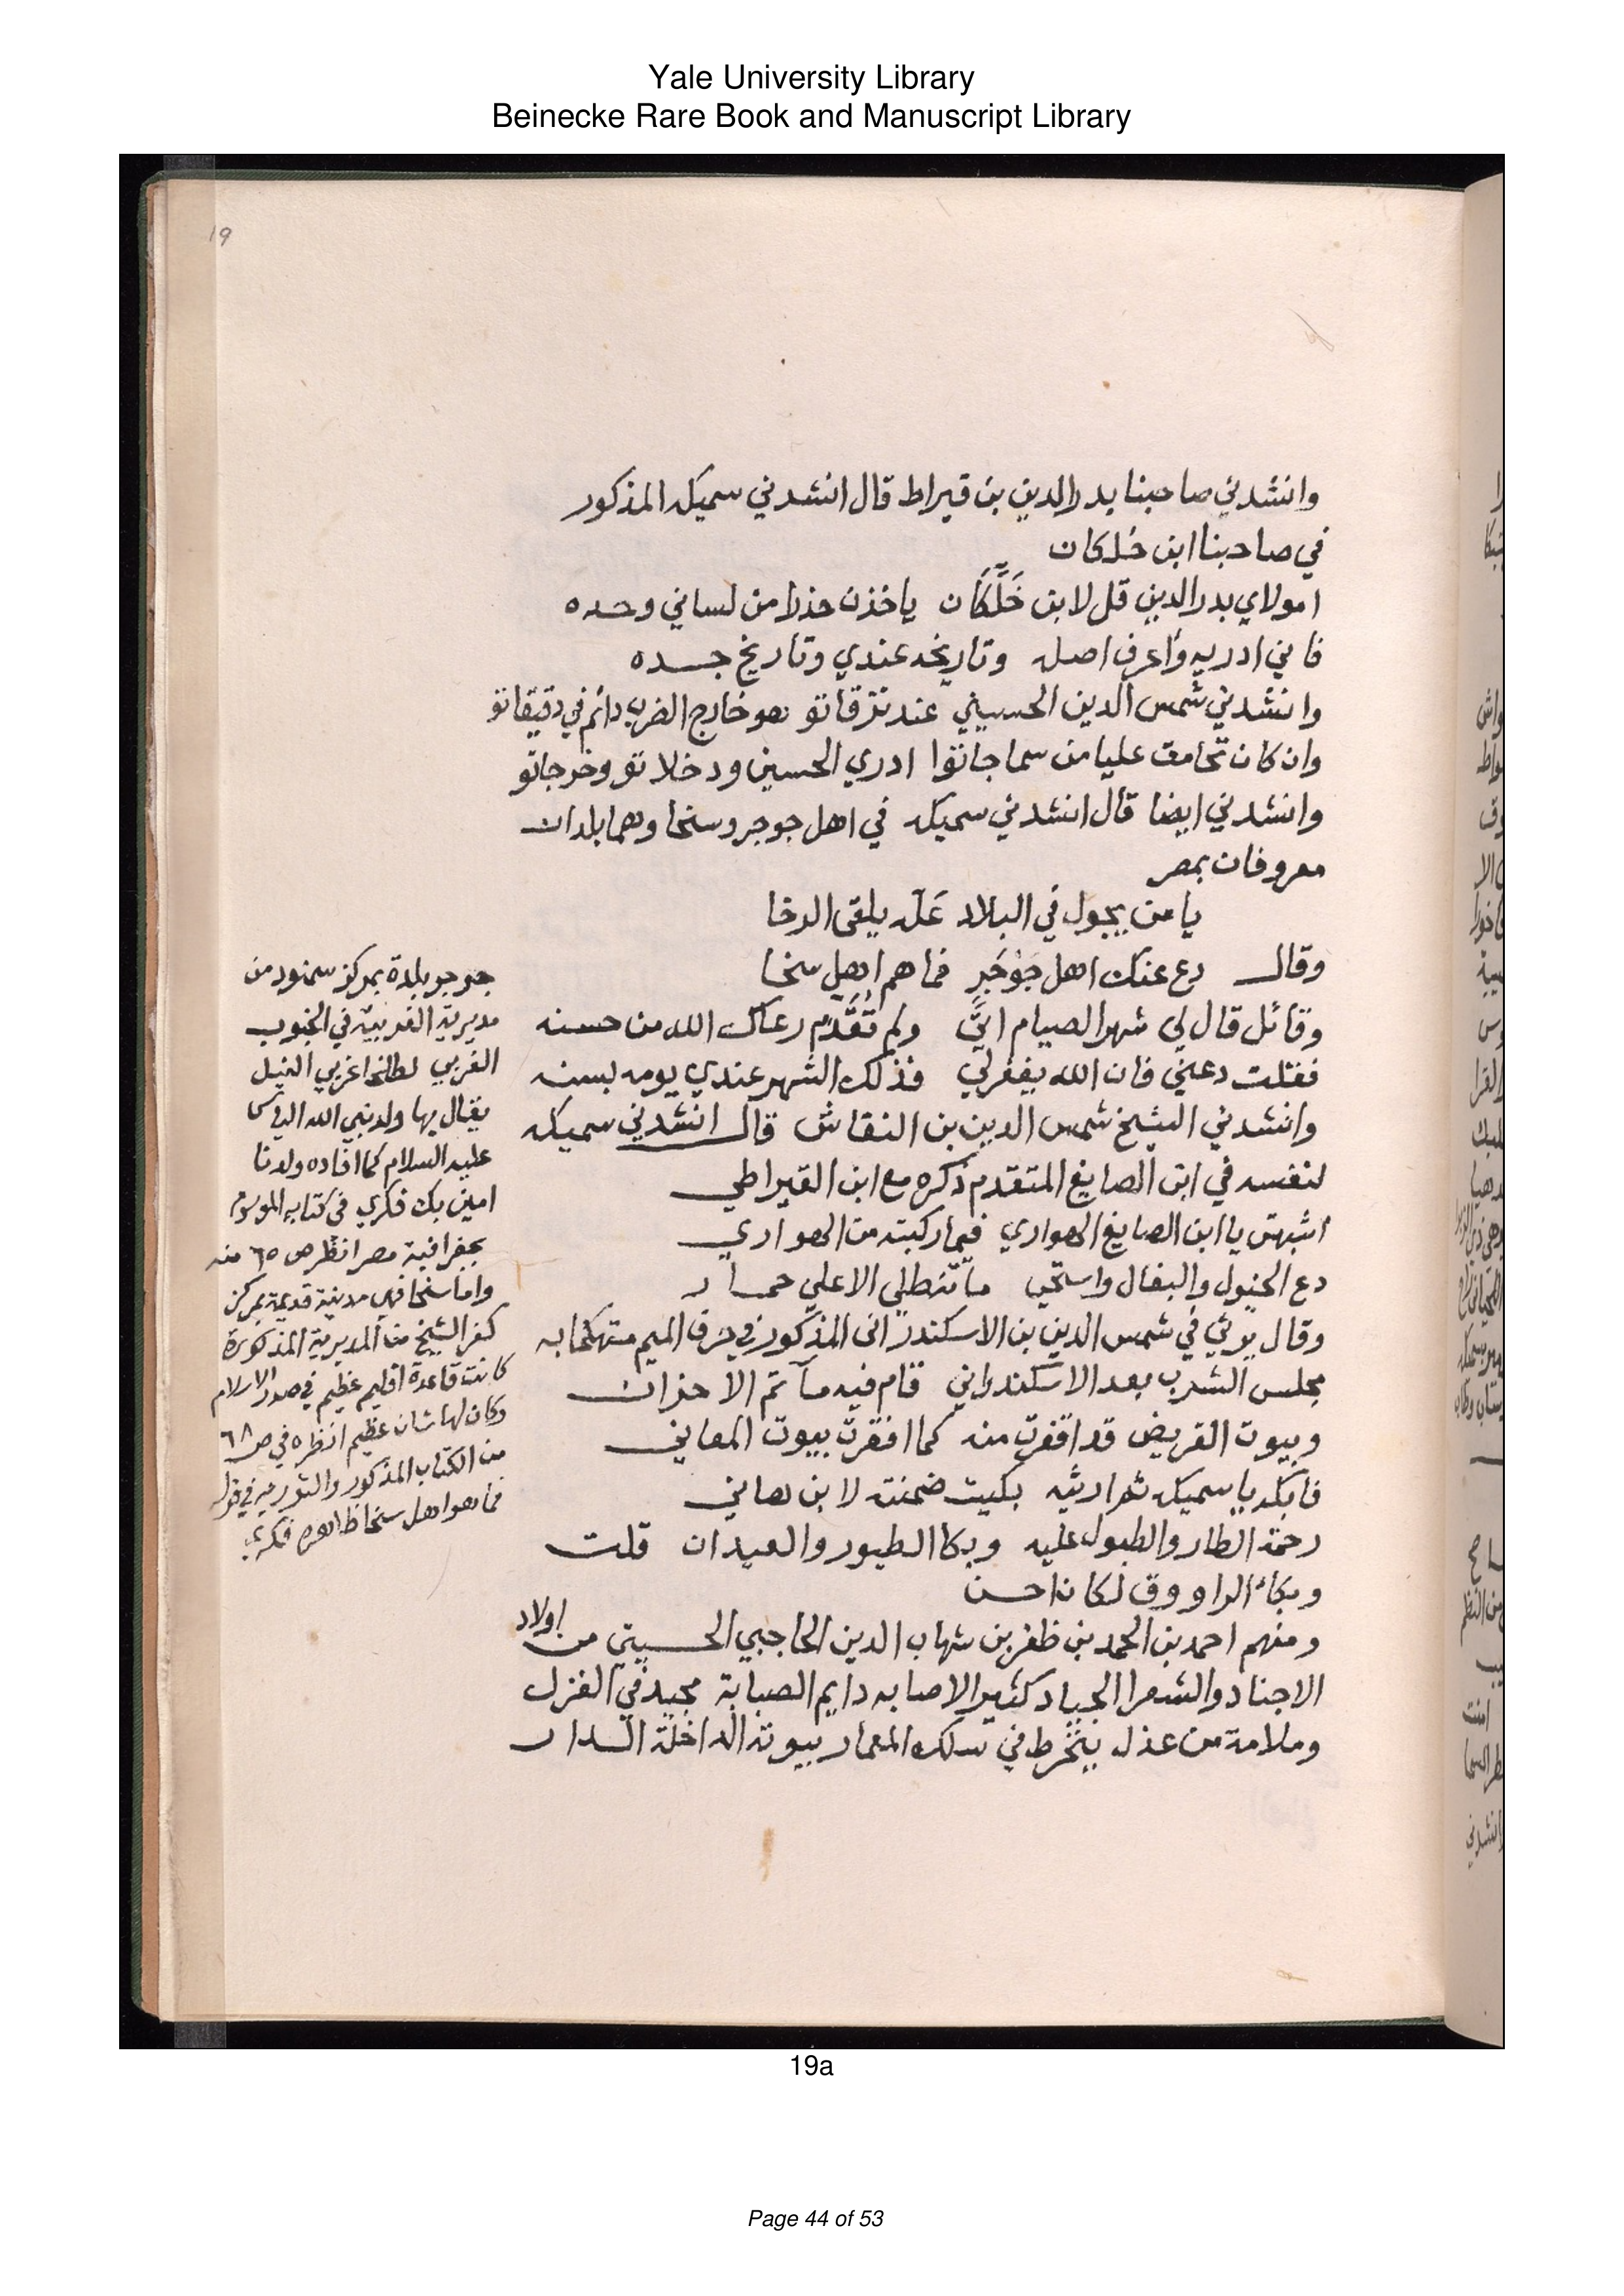 Yale University Library
Beinecke Rare Book and Manuscript Library
19
وانشدني صاحبنا بدر الدين بن قيراط قال انشدني سميكه المذكور
في صاحبنا ابن خلكان
امولاي بدر الدين قل لابن خَلَّكَان ياخذن حذرا من لساني وحده
فاني ادريه وأعرف اصله وتاريخه عندي وتاريخ جده
وانشدني شمس الدين الحسيني عند نزقاتو هو خارج الضرب دائم في دقيقاتو
وان كان تحامق عليا من سماجاتوا ادري الحسين ودخلاتو وخرجاتو
وانشدني ايضا قال انشدني سميكه في اهل جوجر وسخا وهما بلدان
معروفان بمصر
يا من يجول في البلاد عَلّه يلقى الرخا
وقال دع عنك اهل جَوْجَرٍ فما هم اهل سخا
وقائل قال لي شهر الصيام اتى ولم تُقَدِّم رعاك الله من حسنه
فقلت دعني فان الله يغفر لي فذلك الشهر عندي يومه بسنه
وانشدني الشيخ شمس الدين بن النقاش قال انشدني سميكه
لنفسه في ابن الصايغ المتقدم ذكره مع ابن القيراطي
اشبهتى يا ابن الصايغ الهواري فيما ركبته من الهواري
دع الخيول والبغال واستحى ما تنطلي الا على حمار
وقال يرثي في شمس الدين بن الاسكندرانى المذكور في حرف الميم متهكما به
مجلس الشرب بعد الاسكندراني قام فيه مآتم الاحزان
وبيوت القريض قد اقفرت منه كما اقفرت بيوت المعاني
فابكه يا سميكه ثم ارثيه بكيت ضمنته لابن هاني
رحمة الطار والطبول عليه وبكا الطيور والعيدان قلت
وبكاء الراووق لكان احسن
ومنهم احمد بن المحمد بن ظفر بن شهاب الدين الحاجبي الحسيني من اولاد
الاجناد والشعرا الجياد كثير الاصابه دايم الصبابة مجيد في الغزل
وملامة من عذل ينخرط في سلك المعمار بيوته الداخلة السدار
جوجر بلدة بمركز سمنود من
مديرية الغربية في الجنوب
الغربي لطلخا غربي النيل
يقال بها ولد نبي الله الياس
عليه السلام كما افاده ولدنا
امين بك فكري في كتابه الموسوم
بجغرافية مصر انظر ص ٦٥ منه
واما سخا فهي مدينة قديمة بمركز
كفر الشيخ من المديرية المذكورة
كانت قاعدة اقليم عظيم في صدر الاسلام
وكان لها شان عظيم انظره في ص ٦٨
من الكتاب المذكور والتورية في قوله
فما هو اهل سخا ظاهره فكري
19a
Page 44 of 53